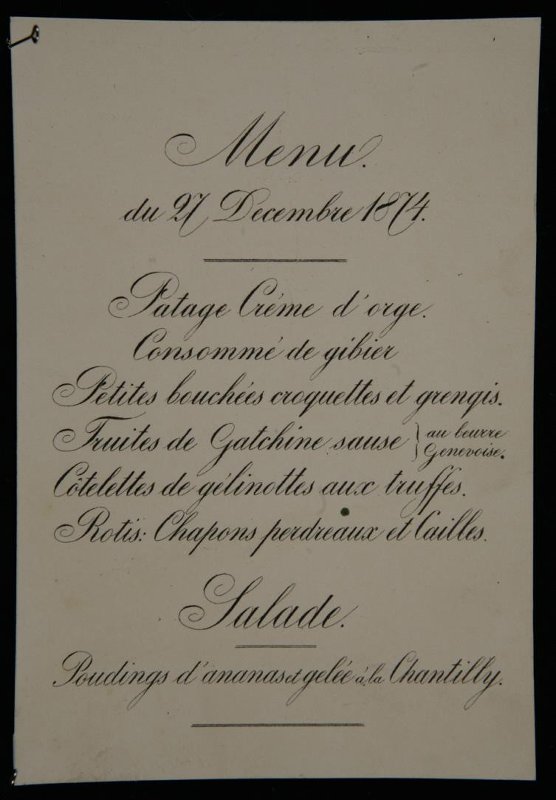 Menu.
du 27 Decembre 1874.
Patage Créme d'orge.
Consommé de gibier
Petites bouchées croquettes et grenqis.
Truites de Gatchine sause } au beurre
Genevoise.
Côtelettes de gélinottes aux truffes.
Rotis: Chapons perdreaux et Cailles.
Salade.
Poudings d'ananas et gelée à la Chantilly.